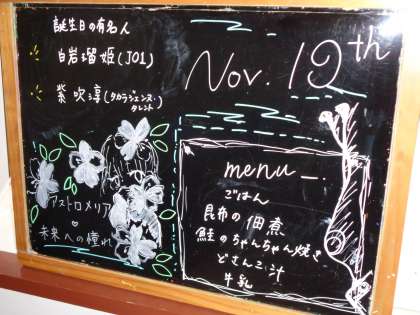 誕生日の有名人
白岩瑠姫(JO1)
紫吹淳(タカラジェンヌ・
タレント)
アストロメリア
未来への憧れ
Nov. 19th
menu
ごはん
昆布の佃煮
鮭のちゃんちゃん焼き
どさんこ汁
牛乳